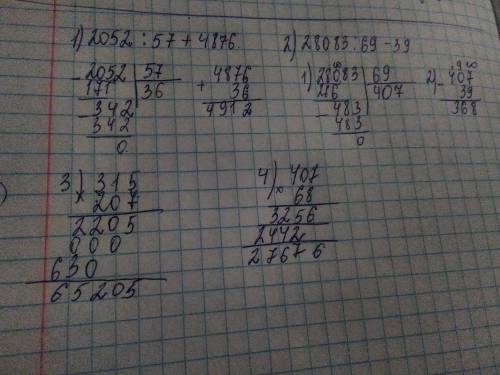 1) 2052 : 57 + 4876.
2) 28083 : 69 - 39
- 2052 | 57
171 | 36
- 342
342
0
+ 4876
36
4912
1) 28083 | 69
276 | 407
- 483
483
0
2) - 407
39
368
3) 315
× 207
2205
000
630
65205
4) 407
× 68
3256
2442
27676